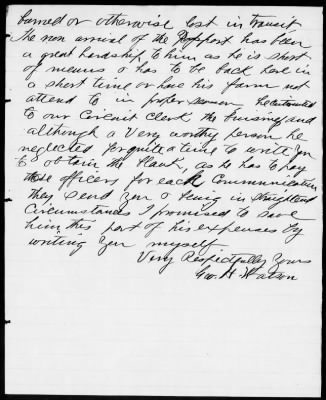 burned or otherwise lost in transit
The non arrival of the Passport has been
a great hardship to him as he is short
of means & has to be back here in
a short time or have his farm not
attend to in proper season He entrusted
to our Circuit Clerk the business and
although a Very worthy person he
neglected for quite a time to write you
to obtain the blank, as he has to pay
these officers for each Communication
they send you & being in straightened
Circumstances I promised to save
him this part of his expenses by
writing you myself
Very Respectfully Yours
Geo. H. Watson